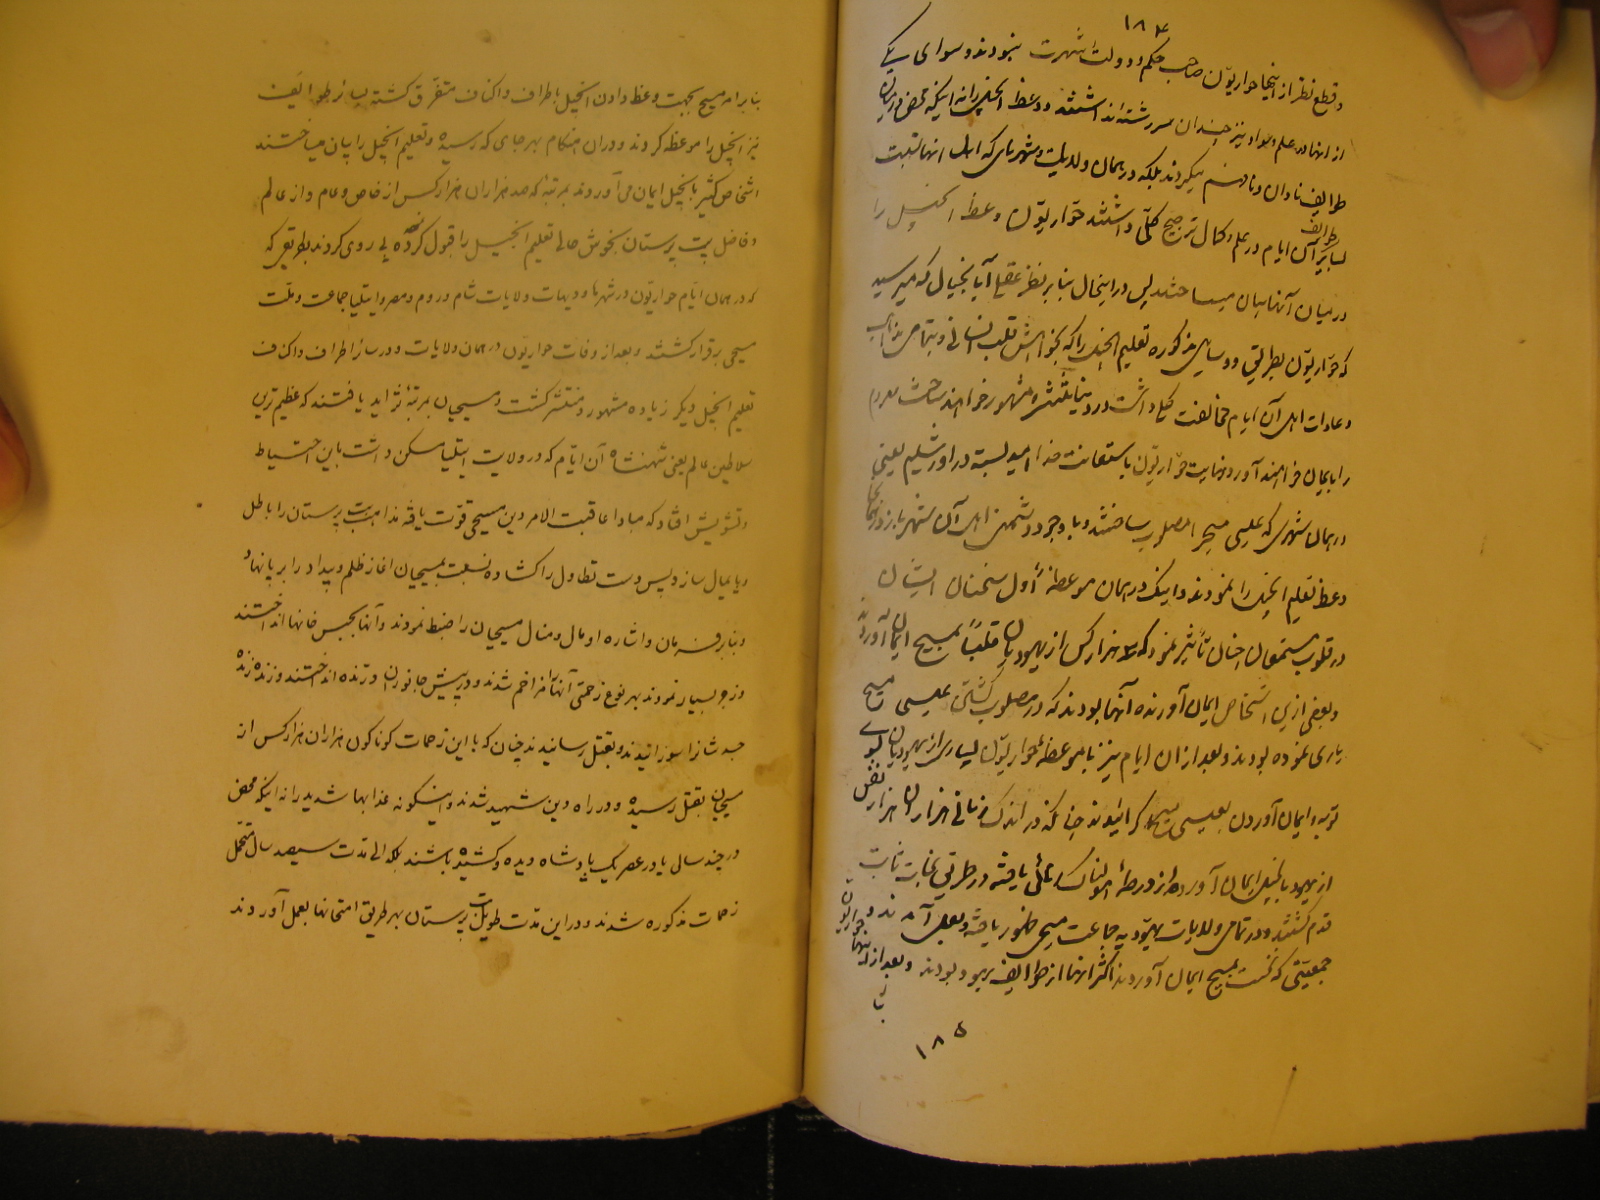 ۱۸۴
و قطع نظر از اینجا حواریّون صاحب حکم و دولت و شهرت نبودند و سوای یکی
از انها در علم و سواد نیز چندان سررشته نداشتند و وعظ انجیل را نه اینکه محض در میان
طوایف نادان و نافهم میکردند بلکه در همان ولایت و شهرهای که اهل انها نسبت
بسایر طوایف آن ایام در علم و کمال ترجیح کلّی داشتند حوّاریّون وعظ انجیل را
در میان آنها بیان میساختند پس در اینحال بنا بر نظر عقل آیا بخیال که میرسید
که حوّاریّون بطریق و وسایل مذکوره تعلیم انجیل را که بخواهش قلب انسانی و بتمامی مذاهب
و عادات اهل آن ایام مخالفت کلی داشت در دنیا منتشر و مشهور خواهند ساخت و مردم
را بایمان خواهند آورد و نهایت حوّاریّون باستعانت خدا امید بسته در اورشلیم یعنی
در همان شهری که عیسی مسیح را مصلوب ساختند و با وجود دشمنی اهل آن شهر باز در همانجا
وعظ و تعلیم انجیل را نمودند و اینک در همان موعظهٔ اول سخنان ایشان
در قلوب مستمعان چنان تأثیر نمود که سه هزار کس از یهودیان قلباً بمسیح ایمان آوردند
و بعضی ازین اشخاص ایمان آورنده آنها بودند که در مصلوب گشتن عیسی مسیح
یاری نموده بودند و بعد از ان ایام نیز با موعظهٔ حواریّون بسیاری از یهودیان بسوی
توبه و ایمان آوردن بعیسی مسیح گرائیدند چنانکه در اندک زمانی هزاران هزار نفس
از یهود بانجیل ایمان آورده از ورطهٔ هولناک رهائی یافته در طریق نجات ثابت
قدم گشتند و در تمامی ولایات یهودیه جماعت مسیحی ظهور یافته و بعمل آمدند و
جمعیّتی که نخست بمسیح ایمان آوردند اکثر انها از طوایف یهود بودند و بعد از اینها حواریون
۱۸۵
بنا بر امر مسیح بجهت وعظ دادن انجیل باطراف و اکناف متفرّق گشته بسایر طوایف
نیز انجیل را موعظه کردند و دران هنگام بهر جای که رسیده و تعلیم انجیل را بیان میساختند
اشخاص کثیر بانجیل ایمان می‌آوردند بمرتبهٔ که صد هزاران هزار کس از خاص و عام و از عالم
و فاضل بت پرستان بخوش حالی تعلیم انجیل را قبول کرده پی روی کردند بطریقی که
که در همان ایّام حواریّون در شهرها و دیهات ولایات شام و روم و مصر و ایتلیا جماعت و ملّت
مسیحی برقرار گشتند و بعد از وفات حواریّون در همان ولایات و در سایر اطراف و اکناف
تعلیم انجیل دیگر زیاده مشهور و منتشر گشت و مسیحیان بمرتبهٔ تزاید یافتند که عظیم ترین
سلاطین عالم یعنی شهنشاه آن ایّام که در ولایت ایتلیا مسکن داشت باین احتیاط
و تشویش افتاد که مبادا عاقبت الامر دین مسیحی قوت یافته مذاهب بت پرستان را باطل
و پایمال سازد پس دست تطاول را گشاده نسبت بمسیحیان اغاز ظلم و بیداد را برپا نهاد
و بنا بر فرمان و اشاره او مال و منال مسیحیان را ضبط نمودند و آنها بحبس خانها انداختند
و زجر بسیار نمودند بهر نوع زحمتی آنها را مزاحم شدند و در پیش جانوران درنده انداختند و زنده زنده
جسدشانرا سوزانیدند و بقتل رسانیدند چنان که با این زحمات کوناکون هزاران هزار کس از
مسیحیان بقتل رسیده و در راه دین شهید شدند و اینگونه عذابها شدید را نه اینکه محض
در چند سال یا در عصر یک پادشاه دیده و کشیده باشند بلکه الی مدت سیصد سال متحمل
زحمات مذکوره شدند و در این مدّت طویل بت پرستان بهر طریق امتحانها بعمل آوردند